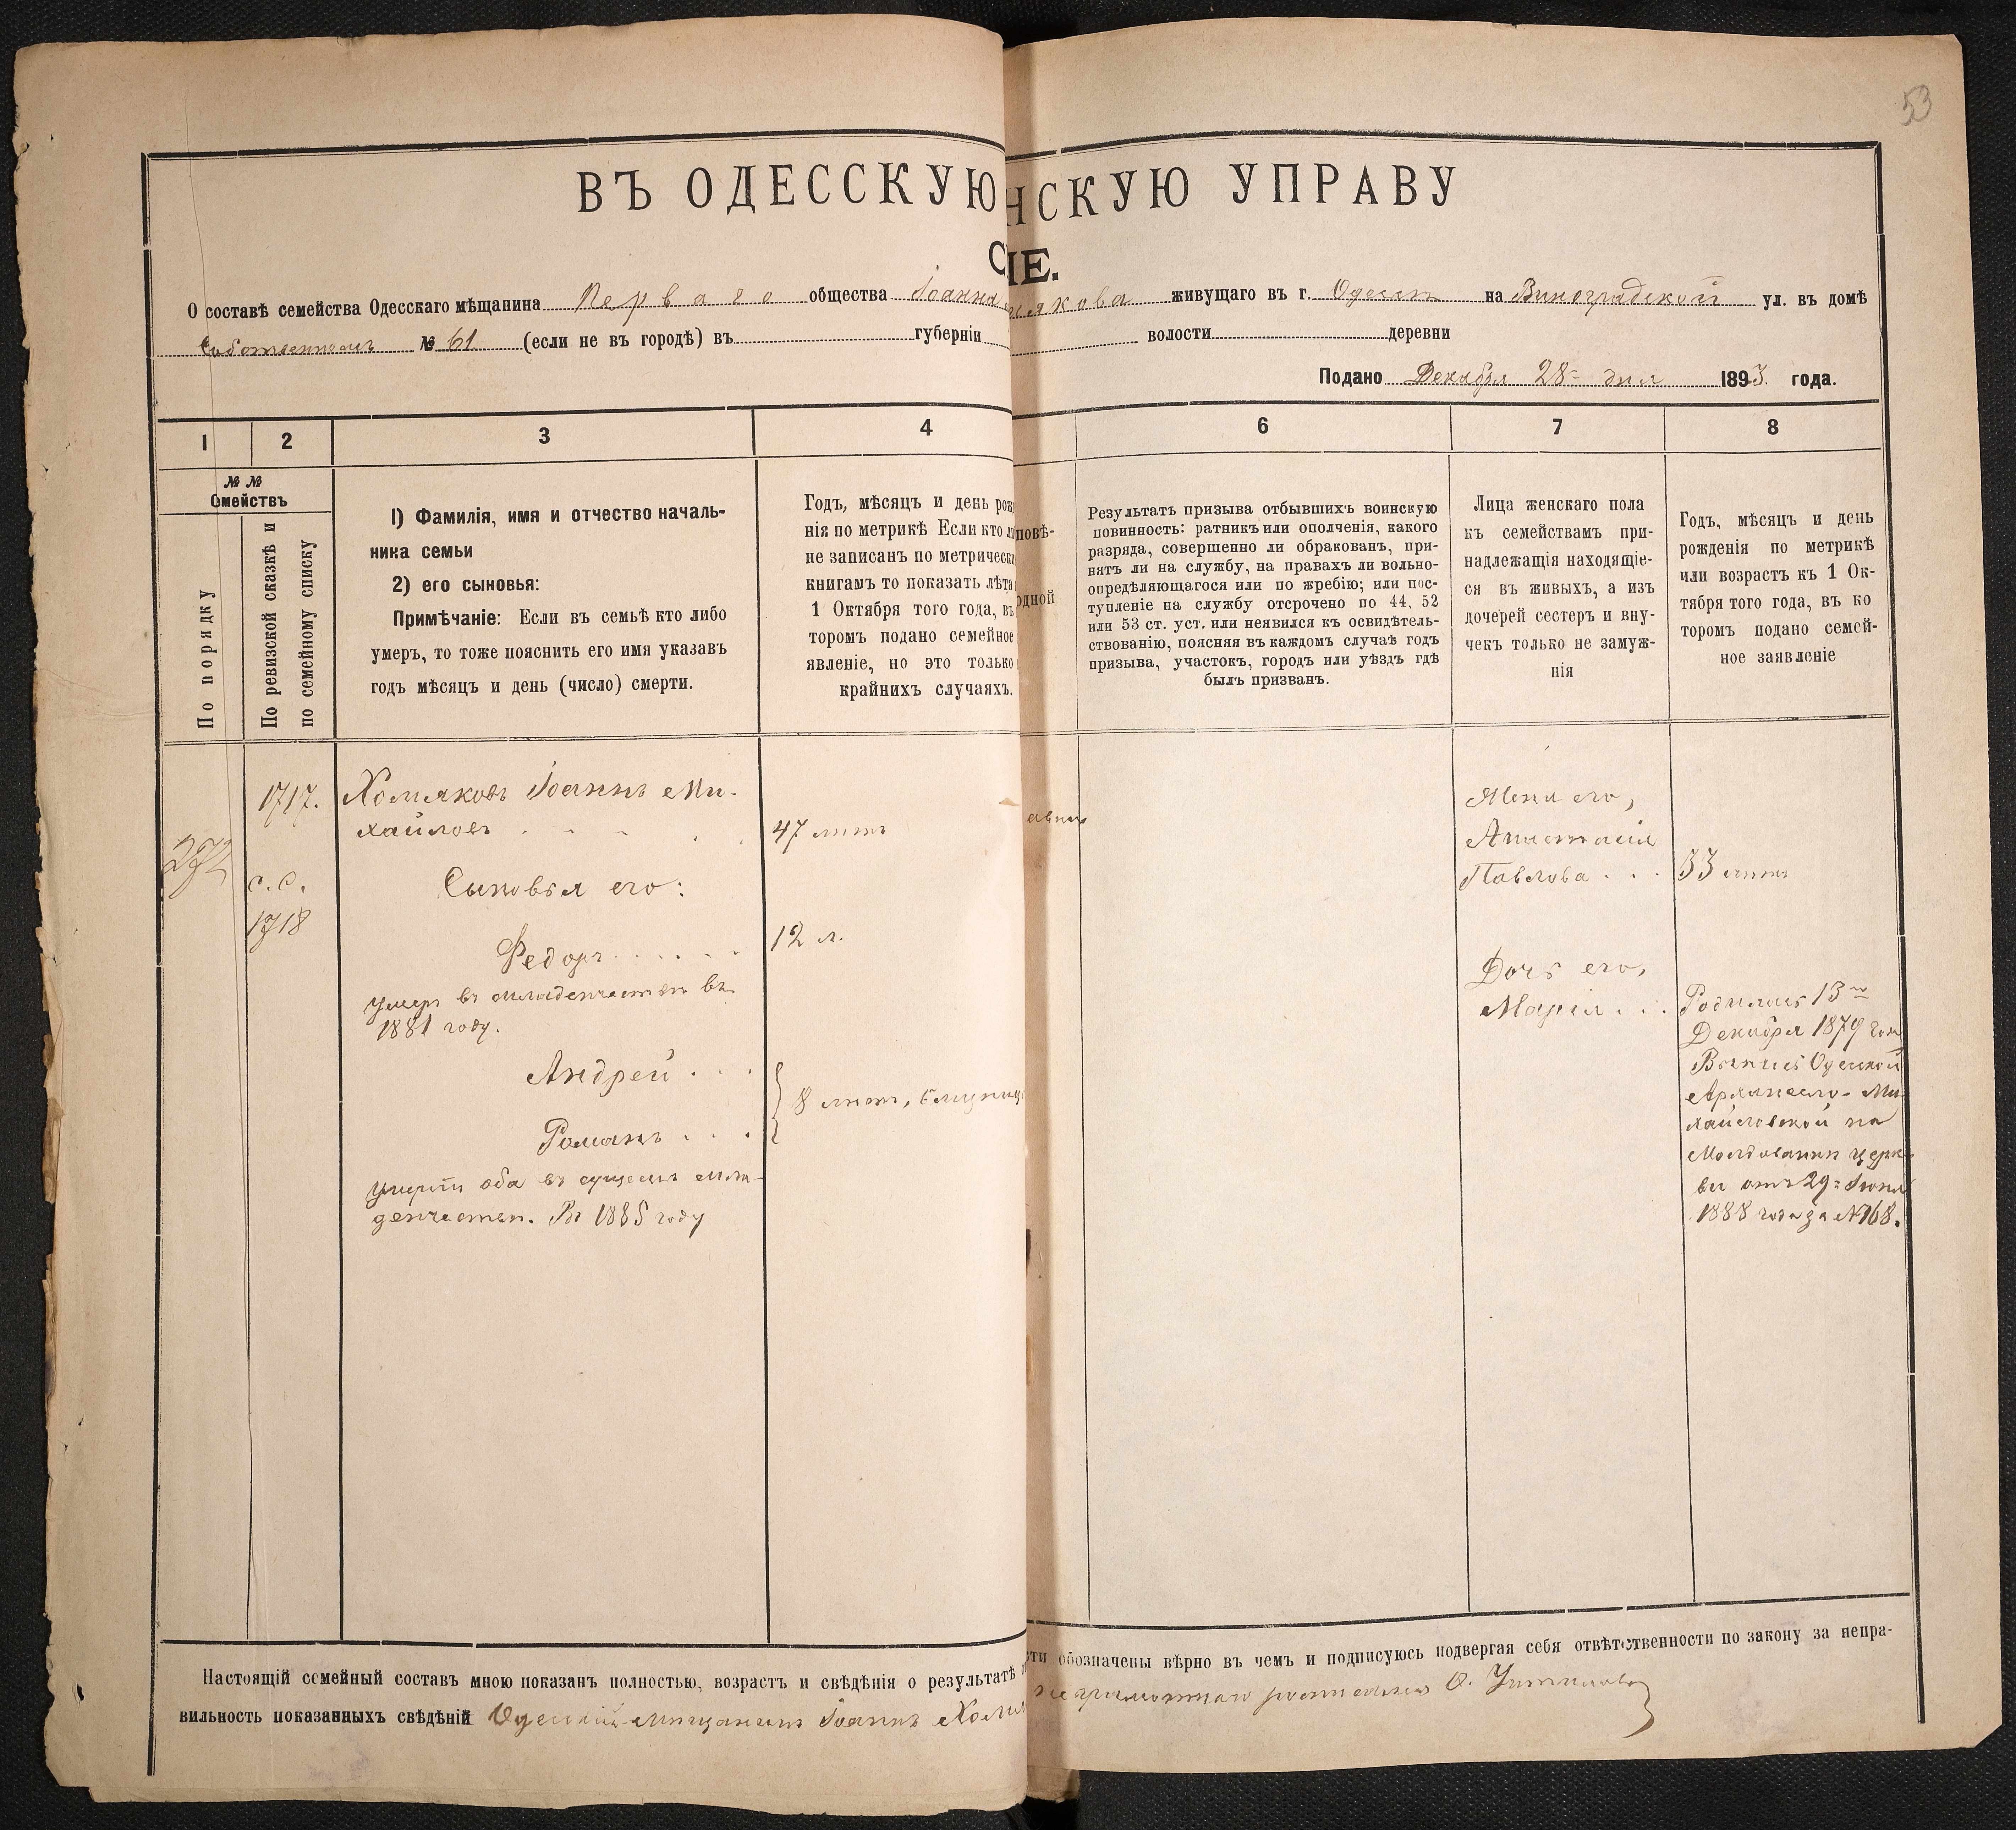 53
ВЪ ОДЕССКУЮ НСКУЮ УПРАВУ
С IЕ.
О составѣ семейства Одесскаго мѣщанина Перваго общества Іоанна мякова живущаго въ г. Одессѣ на Виноградской ул. въ домѣ
собственномъ № 61 (если не въ городѣ) въ губерніи волости деревни
Подано Декабря 28 дня 1893 года.
1 2 3 4 6 7 8
№ №
Семействъ
По порядку
По ревизской сказкѣ и
по семейному списку
1) Фамилія, имя и отчество началь-
ника семьи
2) его сыновья:
Примѣчаніе: Если въ семьѣ кто либо
умеръ, то тоже пояснить его имя указавъ
годъ мѣсяцъ и день (число) смерти.
Годъ, мѣсяцъ и день рож
нія по метрикѣ Если кто ли
не записанъ по метрически
книгамъ то показать лѣта
1 Октября того года, въ
торомъ подано семейное
явленіе, но это только
крайнихъ случаяхъ.
повѣ-
одной
Результатъ призыва отбывшихъ воинскую
повинность: ратникъ или ополченія, какого
разряда, совершенно ли обракованъ, при-
нятъ ли на службу, на правахъ ли вольно-
опредѣляющагося или по жребію; или пос-
тупленіе на службу отсрочено по 44, 52
или 53 ст. уст. или неявился къ освидѣтель-
ствованію, поясняя въ каждомъ случаѣ годъ
призыва, участокъ, городъ или уѣздъ гдѣ
былъ призванъ.
Лица женскаго пола
къ семействамъ при-
надлежащія находящіе-
ся въ живыхъ, а изъ
дочерей сестеръ и вну-
чекъ только не замуж-
нія
Годъ, мѣсяцъ и день
рожденія по метрикѣ
или возрастъ къ 1 Ок-
тября того года, въ ко
торомъ подано семей-
ное заявленіе
272
1717.
с. с.
1718
Хомяковъ Іоаннъ Ми-
хайловъ
Сыновья его:
Федоръ
умеръ въ младенчествѣ въ
1881 году.
Андрей
Романъ
умерли оба въ младенчествѣ. Въ 1885 году
47 лѣтъ
12 л.
8 лѣтъ, близнецы
авны
Жена его,
Анастасія
Павлова
33 лѣтъ
Дочь его,
Марія
Родилась 13го
Декабря 1879 года
Одесской
Архангело-Ми-
хайловской на
Молдованки церк-
ви отъ 29 Іюня
1888 года за №168.
Настоящій семейный составъ мною показанъ полностью, возрастъ и свѣдѣнія о результатѣ о сти обозначены вѣрно въ чемъ и подписуюсь подвергая себя отвѣтственности по закону за непра-
вильность показанныхъ свѣдѣній Одесскій мѣщанинъ Іоаннъ Хомя неграмотнаго росписался